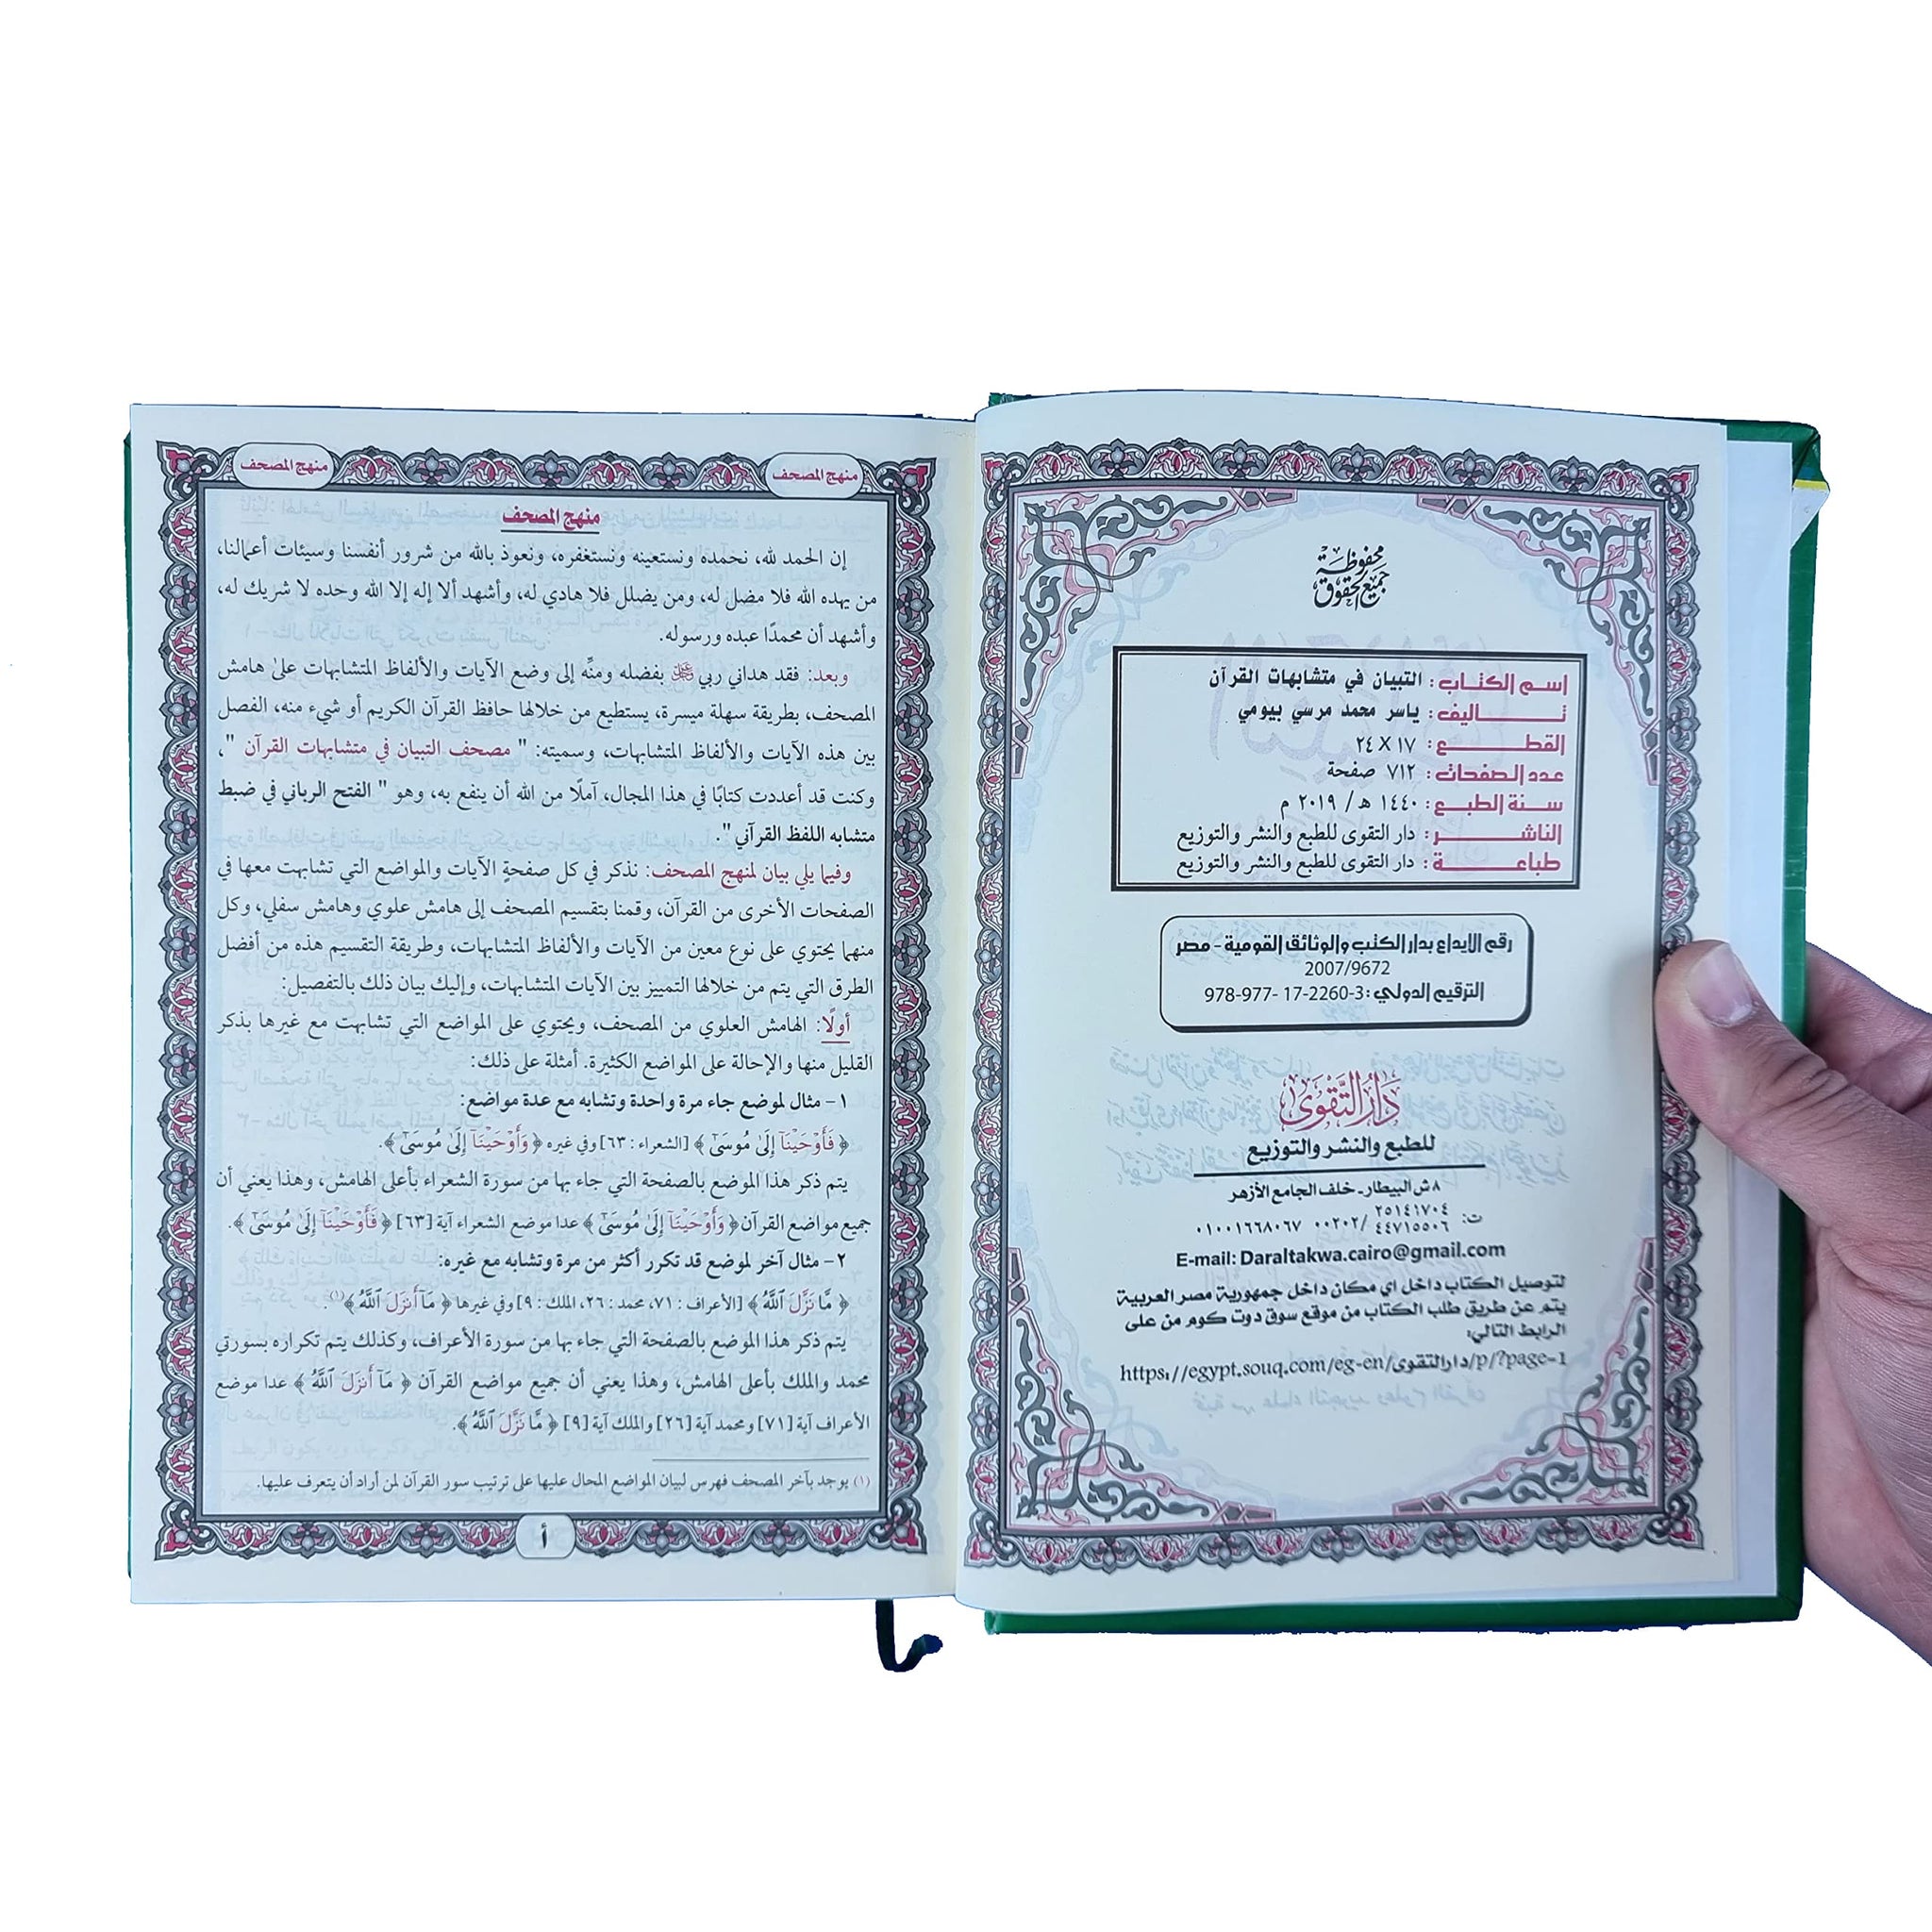 جميع الحقوق محفوظة
اسم الكتاب : التبيان في متشابهات القرآن
تأليف : ياسر محمد مرسي بيومي
القطع : ١٧ X ٢٤
عدد الصفحات : ٧١٢ صفحة
سنة الطبع : ١٤٤٠ هـ / ٢٠١٩ م
الناشر : دار التقوى للطبع والنشر والتوزيع
طباعة : دار التقوى للطبع والنشر والتوزيع
رقم الايداع بدار الكتب والوثائق القومية - مصر
2007/9672
الترقيم الدولي : 978-977- 17-2260-3
دار التقوى
للطبع والنشر والتوزيع
٨ ش البيطار - خلف الجامع الأزهر
ت: ٢٥١٤١٧٠٤
٤٤٧١٥٥٠٦ /٠٠٢٠٢ ٠١٠٠١٦٦٨٠٦٧
E-mail: Daraltakwa.cairo@gmail.com
لتوصيل الكتاب داخل اي مكان داخل جمهورية مصر العربية
يتم عن طريق طلب الكتاب من موقع سوق دوت كوم من على
الرابط التالي:
https://egypt.souq.com/eg-en/دارالتقوى/p/?page=1
منهج المصحف
منهج المصحف
منهج المصحف
إن الحمد لله، نحمده ونستعينه ونستغفره، ونعوذ بالله من شرور أنفسنا وسيئات أعمالنا،
من يهده الله فلا مضل له، ومن يضلل فلا هادي له، وأشهد ألا إله إلا الله وحده لا شريك له،
وأشهد أن محمدًا عبده ورسوله.
وبعد: فقد هداني ربي ﷻ بفضله ومنِّه إلى وضع الآيات والألفاظ المتشابهات على هامش
المصحف، بطريقة سهلة ميسرة، يستطيع من خلالها حافظ القرآن الكريم أو شيء منه، الفصل
بين هذه الآيات والألفاظ المتشابهات، وسميته: " مصحف التبيان في متشابهات القرآن "،
وكنت قد أعددت كتابًا في هذا المجال، آملًا من الله أن ينفع به، وهو " الفتح الرباني في ضبط
متشابه اللفظ القرآني ".
وفيما يلي بيان لمنهج المصحف: نذكر في كل صفحةٍ الآيات والمواضع التي تشابهت معها في
الصفحات الأخرى من القرآن، وقمنا بتقسيم المصحف إلى هامش علوي وهامش سفلي، وكل
منهما يحتوي على نوع معين من الآيات والألفاظ المتشابهات، وطريقة التقسيم هذه من أفضل
الطرق التي يتم من خلالها التمييز بين الآيات المتشابهات، وإليك بيان ذلك بالتفصيل:
أولًا: الهامش العلوي من المصحف، ويحتوي على المواضع التي تشابهت مع غيرها بذكر
القليل منها والإحالة على المواضع الكثيرة. أمثلة على ذلك:
١- مثال لموضع جاء مرة واحدة وتشابه مع عدة مواضع:
﴿ فَأَوْحَيْنَآ إِلَىٰ مُوسَىٰٓ ﴾ [الشعراء : ٦٣] وفي غيره ﴿ وَأَوْحَيْنَآ إِلَىٰ مُوسَىٰٓ ﴾.
يتم ذكر هذا الموضع بالصفحة التي جاء بها من سورة الشعراء بأعلى الهامش، وهذا يعني أن
جميع مواضع القرآن ﴿ وَأَوْحَيْنَآ إِلَىٰ مُوسَىٰٓ ﴾ عدا موضع الشعراء آية [٦٣] ﴿ فَأَوْحَيْنَآ إِلَىٰ مُوسَىٰٓ ﴾.
٢- مثال آخر لموضع قد تكرر أكثر من مرة وتشابه مع غيره:
﴿ مَّا نَزَّلَ ٱللَّهُ ﴾ [الأعراف : ٧١، محمد : ٢٦، الملك : ٩] وفي غيرها ﴿ مَآ أَنزَلَ ٱللَّهُ ﴾(١).
يتم ذكر هذا الموضع بالصفحة التي جاء بها من سورة الأعراف، وكذلك يتم تكراره بسورتي
محمد والملك بأعلى الهامش، وهذا يعني أن جميع مواضع القرآن ﴿ مَآ أَنزَلَ ٱللَّهُ ﴾ عدا موضع
الأعراف آية [٧١] ومحمد آية [٢٦] والملك آية [٩] ﴿ مَّا نَزَّلَ ٱللَّهُ ﴾.
(١) يوجد بآخر المصحف فهرس لبيان المواضع المحال عليها على ترتيب سور القرآن لمن أراد أن يتعرف عليها.
أ